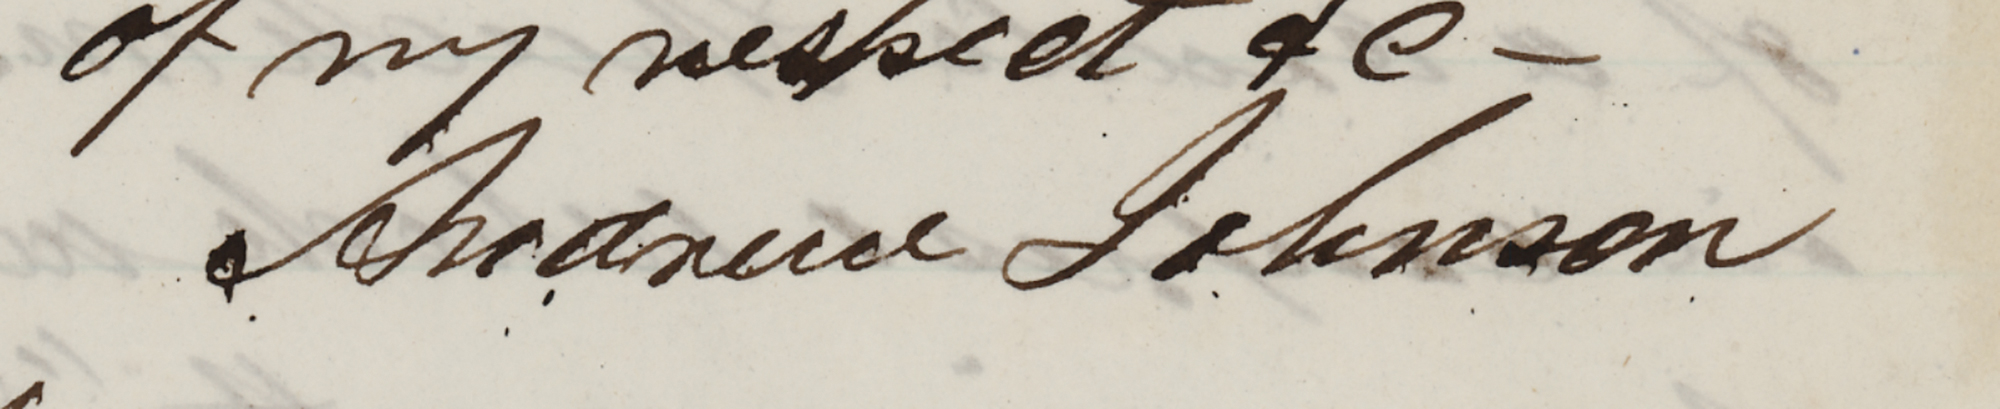 of my respect &c –
Andrew Johnson